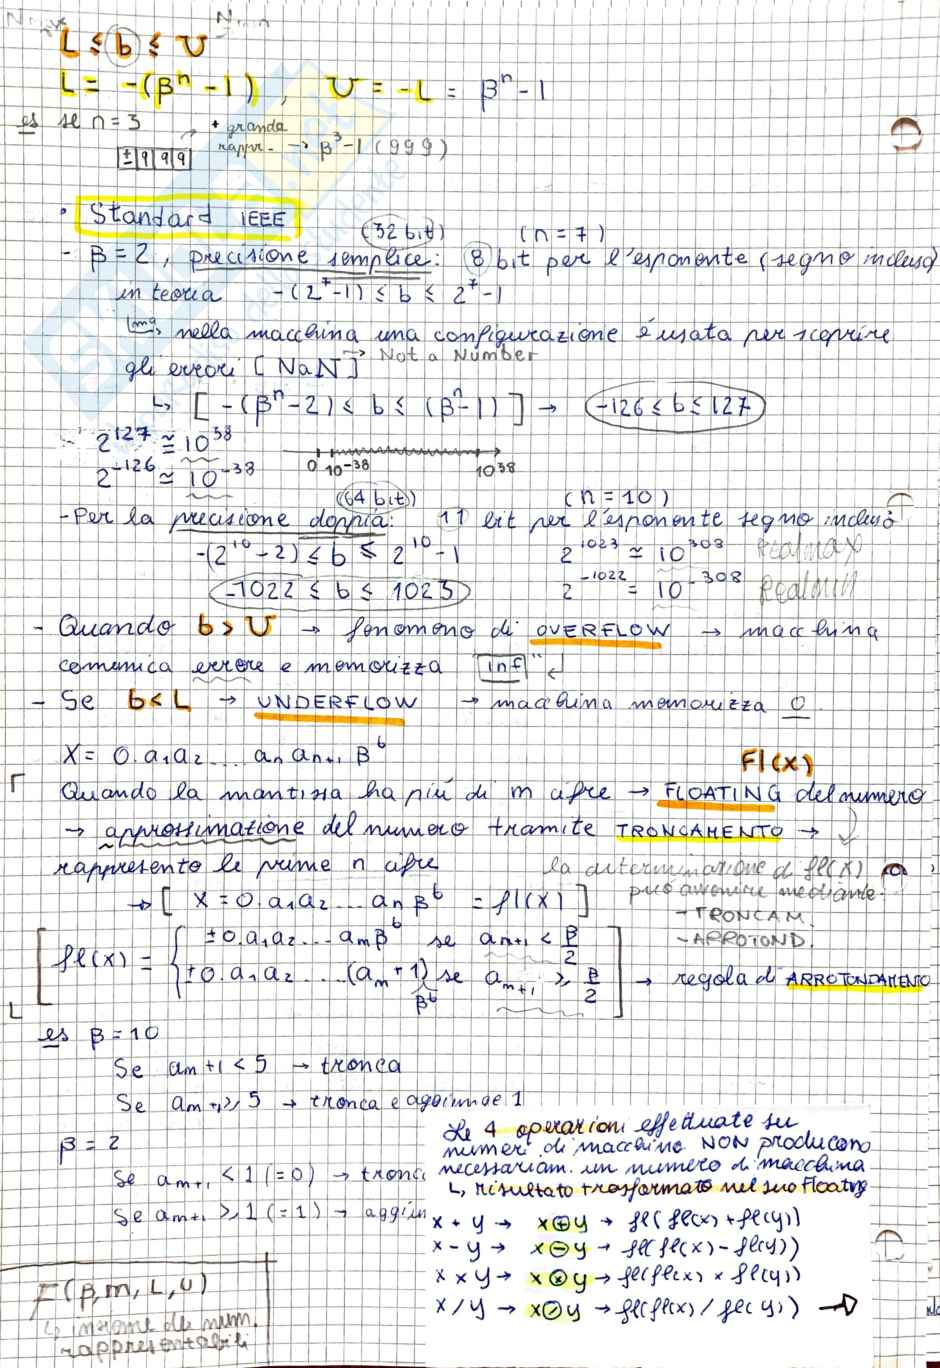 L ≤ b ≤ U
L = -(βⁿ - 1), U = -L = βⁿ - 1
es se n = 3 + grande
± 9 9 9 rappr. → β³-1 (999)
• Standard IEEE
(32 bit) (n = 7)
- β = 2, precisione semplice: 8 bit per l'esponente (segno incluso)
in teoria -(2⁷-1) ≤ b ≤ 2⁷-1
nella macchina una configurazione è usata per scoprire
gli errori [NaN] → Not a Number
↳ [-(βⁿ-2) ≤ b ≤ (βⁿ-1)] → -126 ≤ b ≤ 127
2¹²⁷ ≃ 10³⁸
2⁻¹²⁶ ≃ 10⁻³⁸ 0 10⁻³⁸ 10³⁸
(64 bit) (n = 10)
- Per la precisione doppia: 11 bit per l'esponente segno incluso
-(2¹⁰-2) ≤ b ≤ 2¹⁰-1 2¹⁰²³ ≃ 10³⁰⁸ Realmax
-1022 ≤ b ≤ 1023 2⁻¹⁰²² = 10⁻³⁰⁸ Realmin
- Quando b > U → fenomeno di OVERFLOW → macchina
comunica errore e memorizza "inf"
- Se b < L → UNDERFLOW → macchina memorizza 0
X = 0.a₁a₂....aₙ aₙ₊₁ βᵇ
Fl(x)
Quando la mantissa ha più di m cifre → FLOATING del numero
→ approssimazione del numero tramite TRONCAMENTO →
rappresento le prime n cifre
la determinazione di fl(x)
può avvenire mediante:
- TRONCAM.
- ARROTOND.
→ [X = 0.a₁a₂...aₙ βᵇ = fl(x)]
fl(x) = { ±0.a₁a₂...aₘβᵇ se aₘ₊₁ < β/2
±0.a₁a₂....(aₘ+1)βᵇ se aₘ₊₁ ≥ β/2 → regola di ARROTONDAMENTO
es β = 10
Se aₘ+1 < 5 → tronca
Se aₘ+1 ≥ 5 → tronca e aggiunge 1
β = 2
Se aₘ₊₁ < 1 (=0) → tronc
Se aₘ₊₁ ≥ 1 (=1) → aggiun
F(β, m, L, U)
↳ insieme dei num.
rappresentabili
Le 4 operazioni effettuate su
numeri di macchina NON producono
necessariam. un numero di macchina
↳ risultato trasformato nel suo Floating
x + y → x⊕y → fl(fl(x) + fl(y))
x - y → x⊖y → fl(fl(x) - fl(y))
x × y → x⊗y → fl(fl(x) × fl(y))
x / y → x⊘y → fl(fl(x) / fl(y)) →